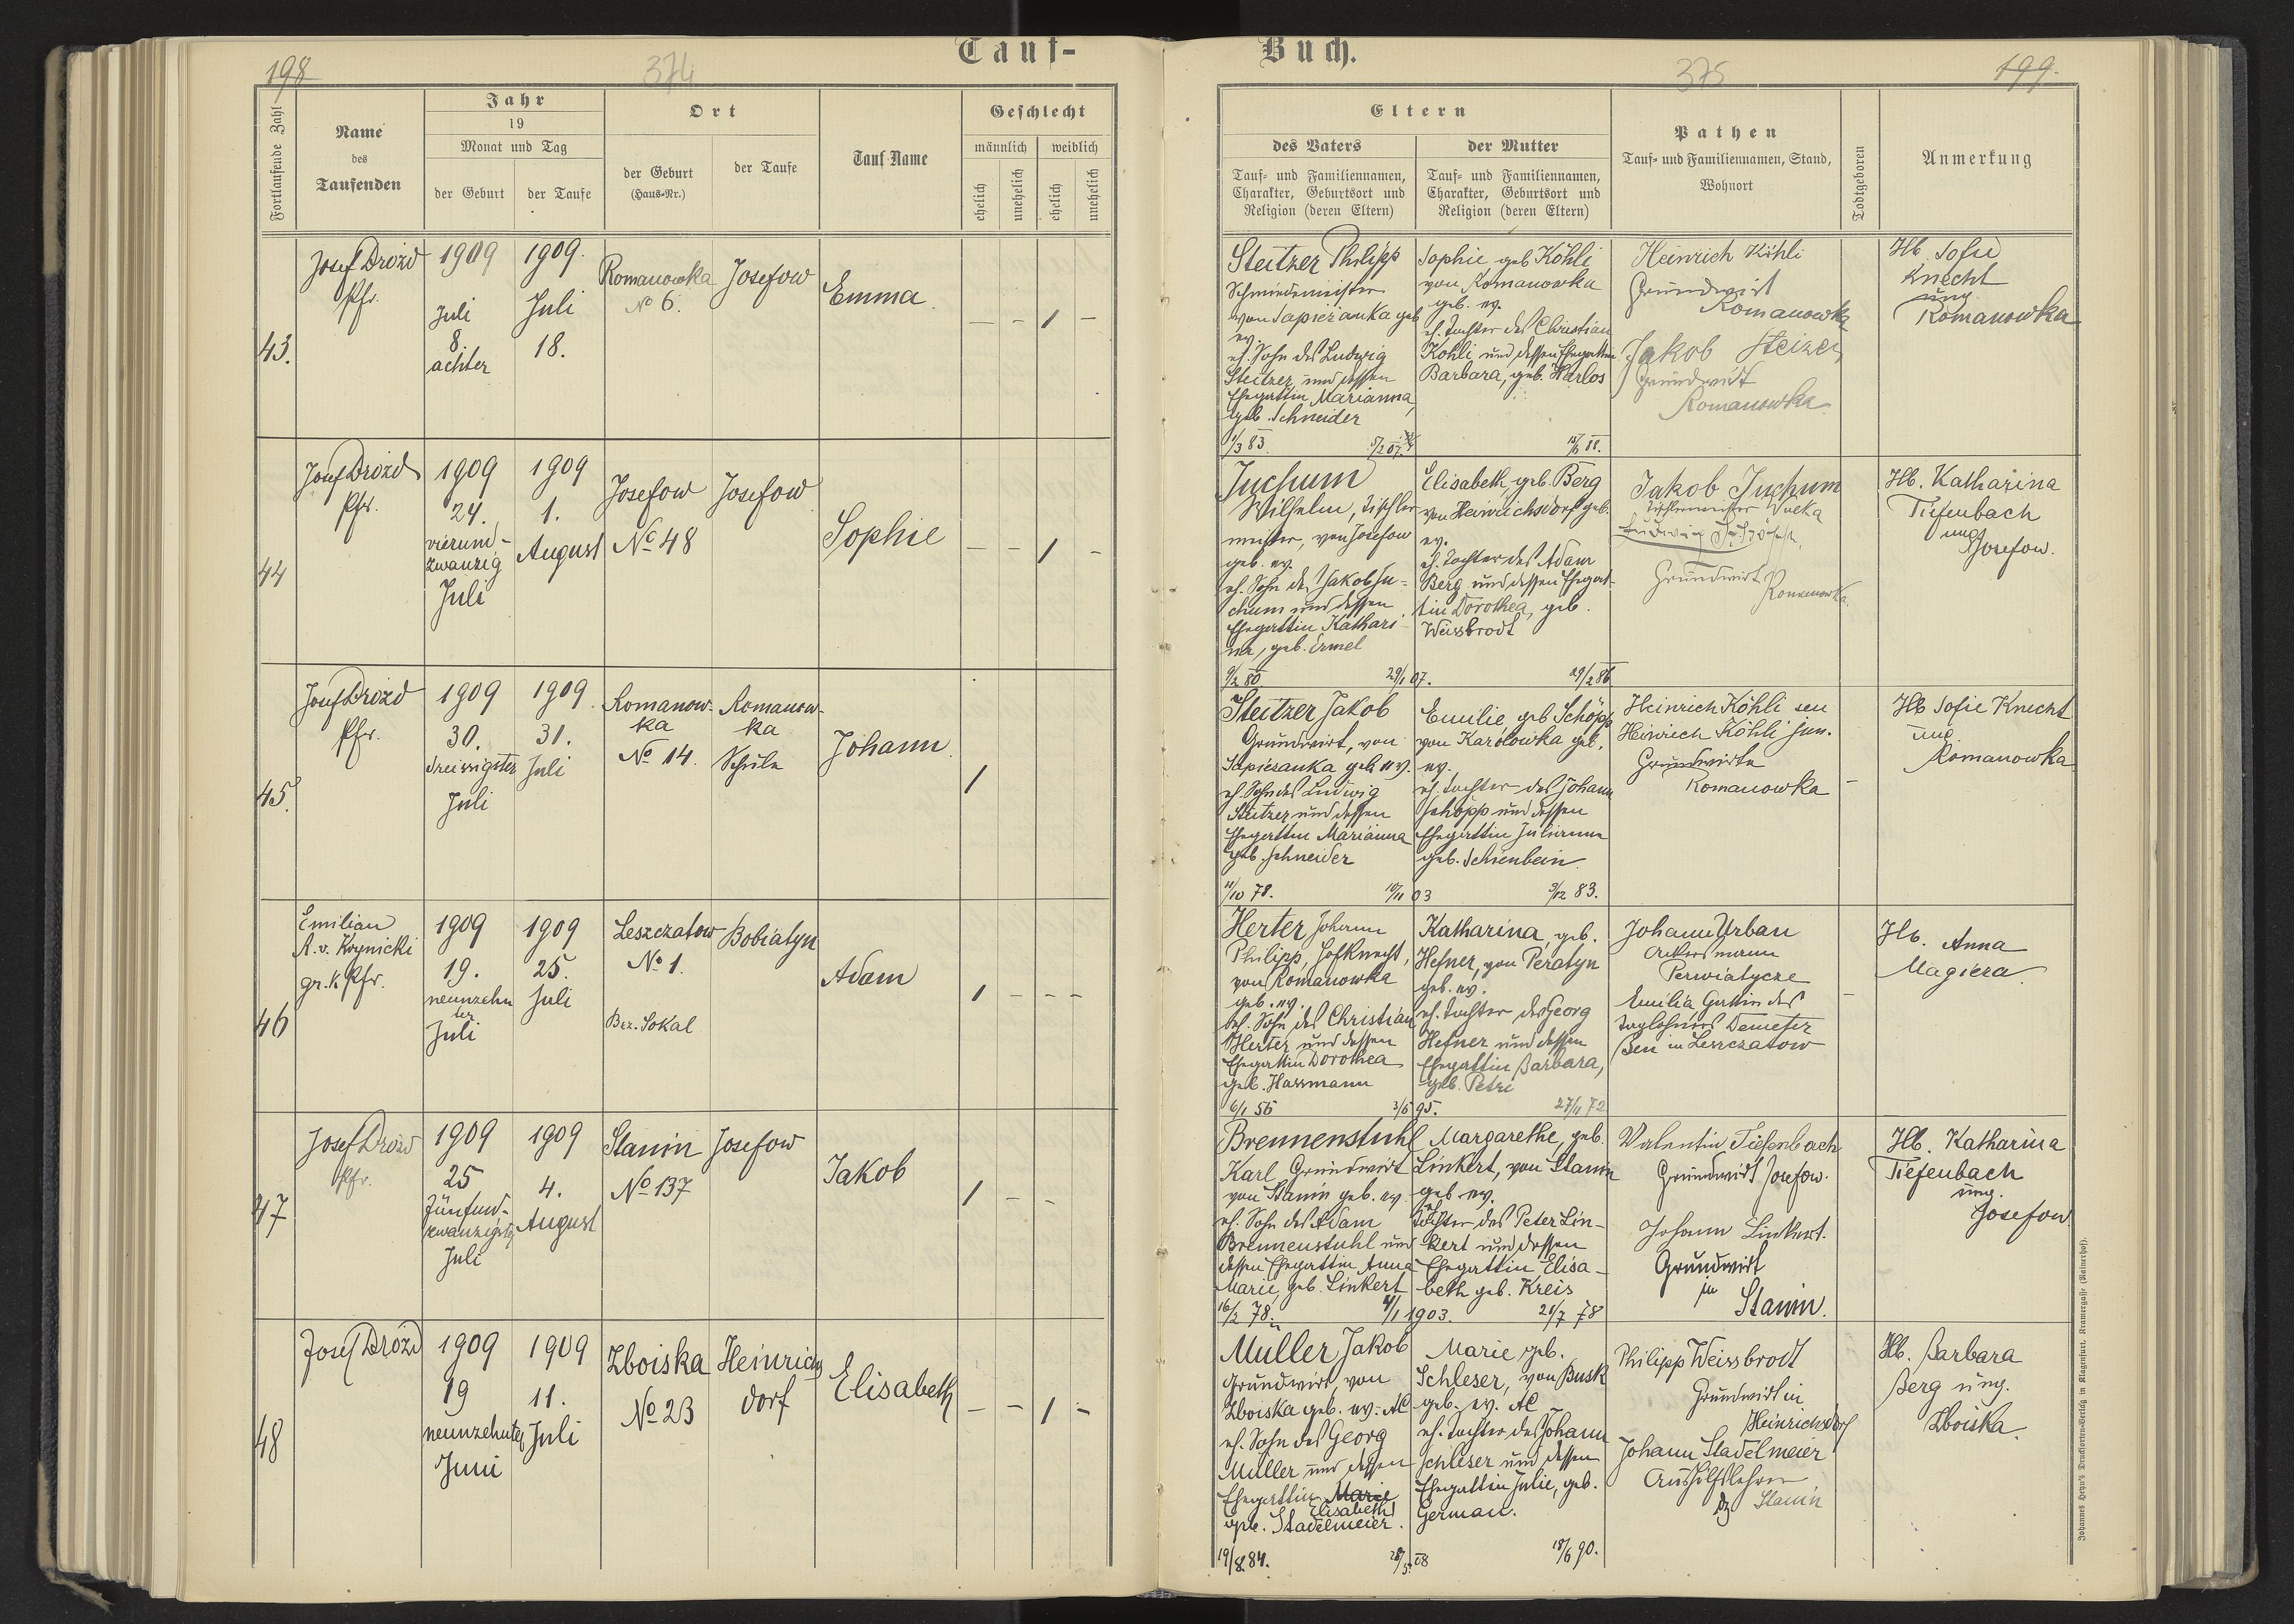 198
374
Tauf-
Fortlaufende Zahl
Name
des
Taufenden
Jahr
19
Monat und Tag
der Geburt
der Taufe
Ort
der Geburt
(Haus-Nr.)
der Taufe
Tauf-Name
Geschlecht
männlich
weiblich
ehelich
unehelich
ehelich
unehelich
43.
Josef Drozd
Pfr.
1909
Juli
8.
achter
1909.
Juli
18.
Romanowka
No 6.
Josefow
Emma
— - 1 -
44
Josef Drozd
Pfr.
1909
24.
vierund-
zwanzig
Juli
1909
1.
August
Josefow
No 48
Josefow
Sophie
- - 1 -
45.
Josef Drozd
Pfr.
1909
30.
dreissigster
Juli
1909.
31.
Juli
Romanow-
ka
No 14.
Romanow-
ka
Schule
Johann
1
46
Emilian
R. v. Krynicki
gr. k. Pfr.
1909
19.
neunzehn
ter
Juli
1909
25.
Juli
Leszczatow
No 1.
Bez. Sokal
Bobiatyn
Adam
1 - - -
47
Josef Drozd
Pfr.
1909
25
Fünfund-
zwanzigster
Juli
1909
4.
August
Stanin
No 137
Josefow
Jakob
1 - -
48
Josef Drozd
1909
19
neunzehnter
Juni
1909
11.
Juli
Zboiska
No 23
Heinrichs
dorf
Elisabeth
- - 1 -
Buch.
375
199.
Eltern
des Vaters
Tauf- und Familiennamen,
Charakter, Geburtsort und
Religion (deren Eltern)
der Mutter
Tauf- und Familiennamen,
Charakter, Geburtsort und
Religion (deren Eltern)
Pathen
Tauf- und Familiennamen, Stand,
Wohnort
Todtgeboren
Anmerkung
Steitzer Philipp
Schmiedemeister
von Sapiezanka geb
ev.
eh. Sohn des Ludwig
Steitzer und dessen
Ehegattin Marianna,
geb. Schneider
1/3 83.
Sophie geb Köhli
von Romanowka
geb. ev.
eh. Tochter des Christian
Kohli und dessen Ehegattin
Barbara, geb. Harlos
Heinrich Köhli
Grundwirt
Romanowka
Jakob Steizer
Grundwirt
Romanowka
Hb. Sofie
Knecht
ung
Romanowka
Juchum
Wilhelm, Tischler
meister, von Josefow
geb. ev.
eh. Sohn des Jakob Ju-
chum und dessen
Ehegattin Kathari
na, geb. Ermel
9/2 80
29/1 07.
Elisabeth, geb. Berg
von Heinrichsdorf geb.
ev.
eh. Tochter des Adam
Berg und dessen Ehegat-
tin Dorothea, geb.
Weissbrodt
29/2 86
Jakob Juchum
Tischlermeister
Grundwirt
Romanowka
Hb. Katharina
Tiefenbach
ung
Josefow.
Steitzer Jakob
Grundwirt, von
Sapiezanka geb. ev.
eh. Sohn des Ludwig
Steitzer und dessen
Ehegattin Marianna
geb. Schneider
11/10 78.
10/11 03
Emilie, geb Schöpp
von Karolowka geb.
ev.
eh. Tochter des Johann
Schöpp und dessen
Ehegattin Julianna
geb. Schienbein
3/12 83.
Heinrich Köhli sen
Heinrich Köhli jun.
Grundwirte
Romanowka
-
Hb Sofie Knecht
ung
Romanowka
Herter Johann
Philipp, Hofknecht,
von Romanowka
geb. ev.
eh. Sohn des Christian
Herter und dessen
Ehegattin Dorothea
geb. Hassmann
6/1 56
3/6 95.
Katharina, geb.
Hefner, von Peratyn
geb. ev.
eh. Tochter des Georg
Hefner und dessen
Ehegattin Barbara,
geb. Petri
27/11 72
Johann Urban
Ackersmann
Perwiatycze
Emilia Gattin des
Taglöhners Demeter
Ben in Leszczatow
-
Hb. Anna
Magiera
Brennenstuhl
Karl Grundwirt
von Stanin geb. ev.
eh. Sohn des Adam
Brennenstuhl und
dessen Ehegattin Anna
Marie, geb. Linkert
16/2 78.
4/1 1903.
Margarethe, geb.
Linkert, von Stanin
geb. ev.
eh
Tochter des Peter Lin-
kert und dessen
Ehegattin Elisa-
beth geb. Kreis
21/7 78
Valentin Tiefenbach
Grundwirt Josefow.
Johann Linkert.
Grundwirt
in
Stanin.
Hb. Katharina
Tiefenbach
ung.
Josefow
Muller Jakob
Grundwirt von
Zboiska geb. ev. AC
eh. Sohn des Georg
Müller und dessen
Ehegattin Marie
Elisabeth
geb. Stadelmeier.
19/8 84.
Marie geb.
Schleser, von Busk
geb. ev. AC
eh. Tochter des Johann
Schleser und dessen
Ehegattin Julie, geb.
German.
18/6 90.
Philipp Weissbrodt
Grundwirt in
Heinrichsdorf
Johann Stadelmeier
Aushilfslehrer
Stanin
Hb. Barbara
Berg ung.
Zboiska.
Johannes Heyn's Drucksorten-Verlag in Klagenfurt, Kramergasse (Rainerhof).